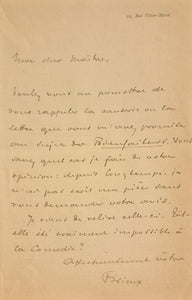 Mon cher Maître,
Voulez vous me permettre de
vous rappeler la causerie ou la
lettre que vous m'avez promise
au sujet des Bienfaiteurs. Vous
savez quel cas je fais de votre
opinion: depuis longtemps, je
n'ai pas écrit une pièce sans
vous demander votre avis.
Je viens de relire celle-ci. Est-
elle été vraiment impossible à
la Comédie?
Affectueusement vôtre
Brieux